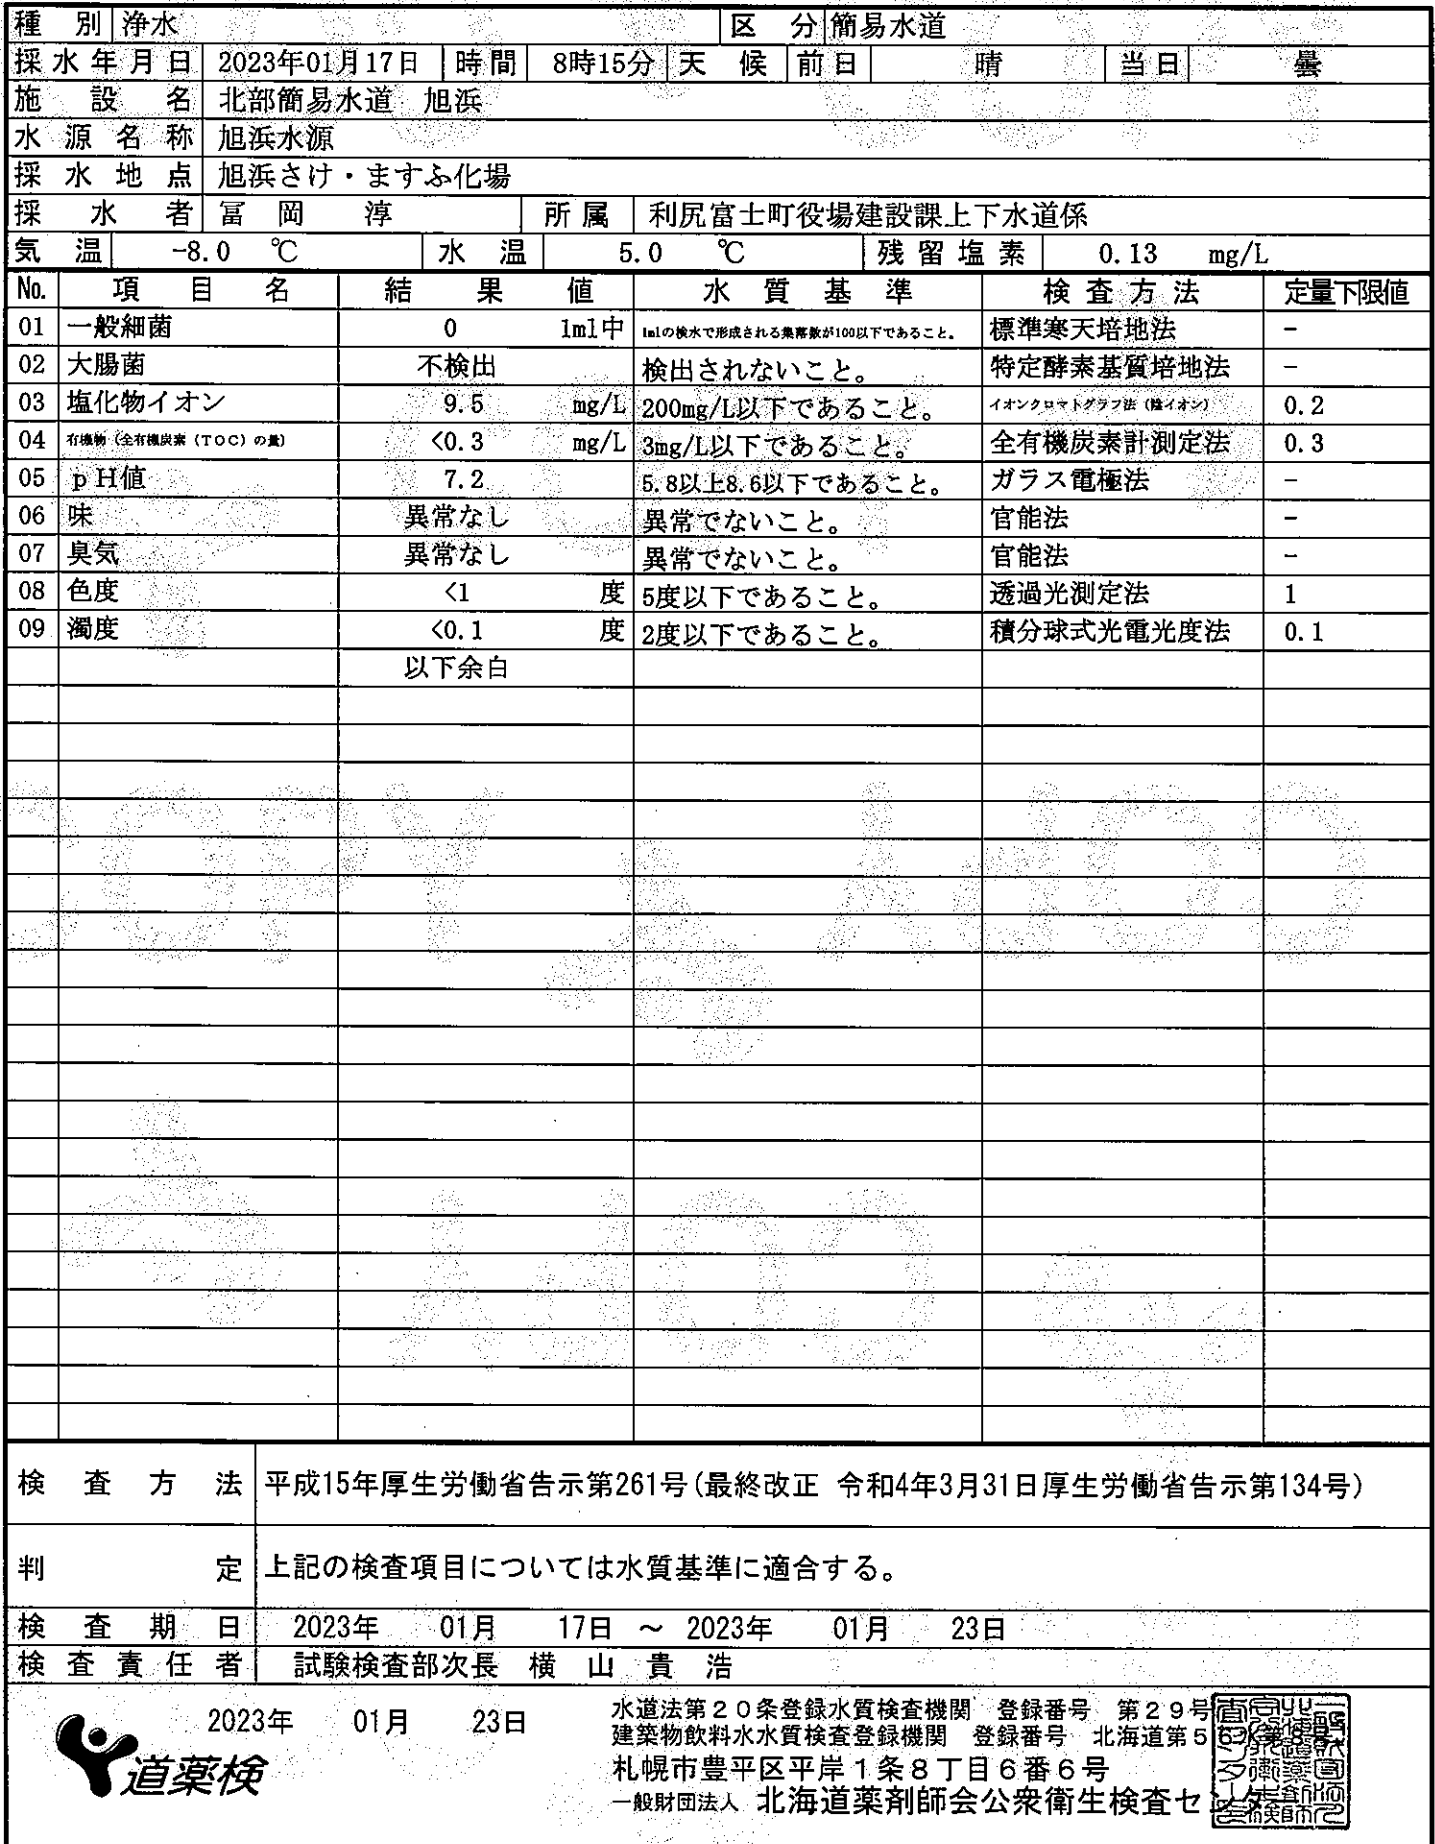 種 別 浄水 区 分 簡易水道
採水年月日 2023年01月17日 時間 8時15分 天 候 前日 晴 当日 曇
施 設 名 北部簡易水道 旭浜
水 源 名 称 旭浜水源
採 水 地 点 旭浜さけ・ますふ化場
採 水 者 冨 岡 淳 所属 利尻富士町役場建設課上下水道係
気 温 -8.0 ℃ 水 温 5.0 ℃ 残留塩素 0.13 mg/L
No. 項 目 名 結 果 値 水 質 基 準 検査方法 定量下限値
01 一般細菌 0 1ml中 1mlの検水で形成される集落数が100以下であること。 標準寒天培地法 -
02 大腸菌 不検出 検出されないこと。 特定酵素基質培地法 -
03 塩化物イオン 9.5 mg/L 200mg/L以下であること。 イオンクロマトグラフ法（陰イオン） 0.2
04 有機物（全有機炭素（TOC）の量） <0.3 mg/L 3mg/L以下であること。 全有機炭素計測定法 0.3
05 pH値 7.2 5.8以上8.6以下であること。 ガラス電極法 -
06 味 異常なし 異常でないこと。 官能法 -
07 臭気 異常なし 異常でないこと。 官能法 -
08 色度 <1 度 5度以下であること。 透過光測定法 1
09 濁度 <0.1 度 2度以下であること。 積分球式光電光度法 0.1
以下余白
検 査 方 法 平成15年厚生労働省告示第261号(最終改正 令和4年3月31日厚生労働省告示第134号)
判 定 上記の検査項目については水質基準に適合する。
検 査 期 日 2023年 01月 17日 ～ 2023年 01月 23日
検 査 責 任 者 試験検査部次長 横 山 貴 浩
2023年 01月 23日
道薬検
水道法第２０条登録水質検査機関 登録番号 第２９号
建築物飲料水水質検査登録機関 登録番号 北海道第５６水第８号
札幌市豊平区平岸１条８丁目６番６号
一般財団法人 北海道薬剤師会公衆衛生検査センター